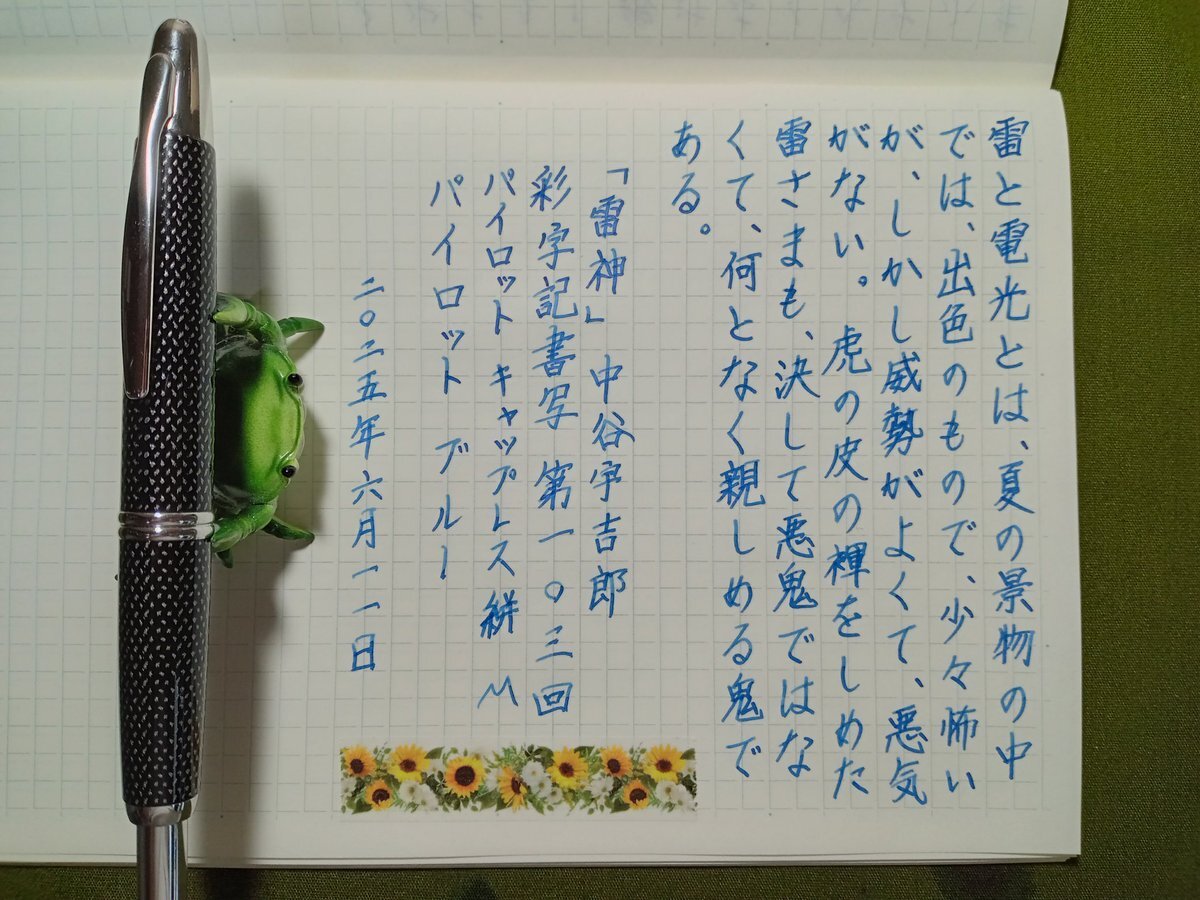 雷と電光とは、夏の景物の中
では、出色のもので、少々怖い
が、しかし威勢がよくて、悪気
がない。虎の皮の褌をしめた
雷さまも、決して悪鬼ではな
くて、何となく親しめる鬼で
ある。
「雷神」 中谷宇吉郎
彩字記書写 第一〇三回
パイロット キャップレス 絣 M
パイロット ブルー
二〇二五年六月一一日